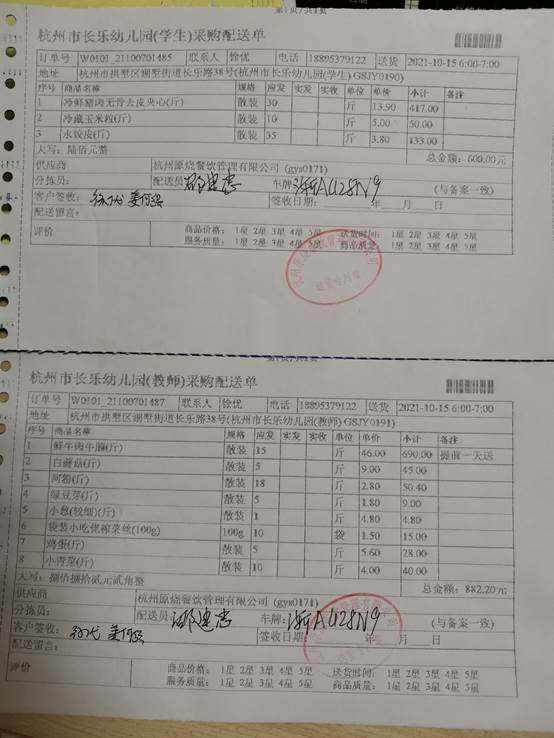 第1页/共1页
杭州市长乐幼儿园(学生)采购配送单
订单号 W0101_21100701485 联系人 徐优 电话 18895379122 送货 2021-10-15 6:00-7:00
地址 杭州市拱墅区湖墅街道长乐路38号(杭州市长乐幼儿园(学生) GSJY0190)
序号 商品名称 规格 应发 实发 实收 单位 单价 小计 备注
1 冷鲜猪肉无骨去皮夹心(斤) 散装 30 斤 13.90 417.00
2 冷藏玉米粒(斤) 散装 10 斤 5.00 50.00
3 水饺皮(斤) 散装 35 斤 3.80 133.00
大写: 陆佰元整 总金额: 600.00元
供应商 杭州原烧餐饮管理有限公司 (gys0171)
分拣员: 配送员: 车牌: 浙AU28N9 (与备案一致)
客户签收: 签收日期: 年 月 日
配送留言:
评价 商品价格: 1星 2星 3星 4星 5星 送货时间: 1星 2星 3星 4星 5星
服务质量: 1星 2星 3星 4星 5星 商品质量: 1星 2星 3星 4星 5星
第1页/共1页
杭州市长乐幼儿园(教师)采购配送单
订单号 W0101_21100701487 联系人 徐优 电话 18895379122 送货 2021-10-15 6:00-7:00
地址 杭州市拱墅区湖墅街道长乐路38号(杭州市长乐幼儿园(教师) GSJY0191)
序号 商品名称 规格 应发 实发 实收 单位 单价 小计 备注
1 鲜牛肉牛腩(斤) 散装 15 斤 46.00 690.00 提前一天送
2 白蘑菇(斤) 散装 5 斤 9.00 45.00
3 河粉(斤) 散装 18 斤 2.80 50.40
4 绿豆芽(斤) 散装 5 斤 1.80 9.00
5 小葱(较细)(斤) 散装 1 斤 4.80 4.80
6 袋装小吃佬榨菜丝(100g) 100g 10 袋 1.50 15.00
7 鸡蛋(斤) 散装 5 斤 5.60 28.00
8 小青菜(斤) 散装 10 斤 4.00 40.00
大写: 捌佰捌拾贰元贰角整 总金额: 882.20元
供应商 杭州原烧餐饮管理有限公司 (gys0171)
分拣员: 配送员: 车牌: 浙AU28N9 (与备案一致)
客户签收: 签收日期: 年 月 日
配送留言:
评价 商品价格: 1星 2星 3星 4星 5星 送货时间: 1星 2星 3星 4星 5星
服务质量: 1星 2星 3星 4星 5星 商品质量: 1星 2星 3星 4星 5星